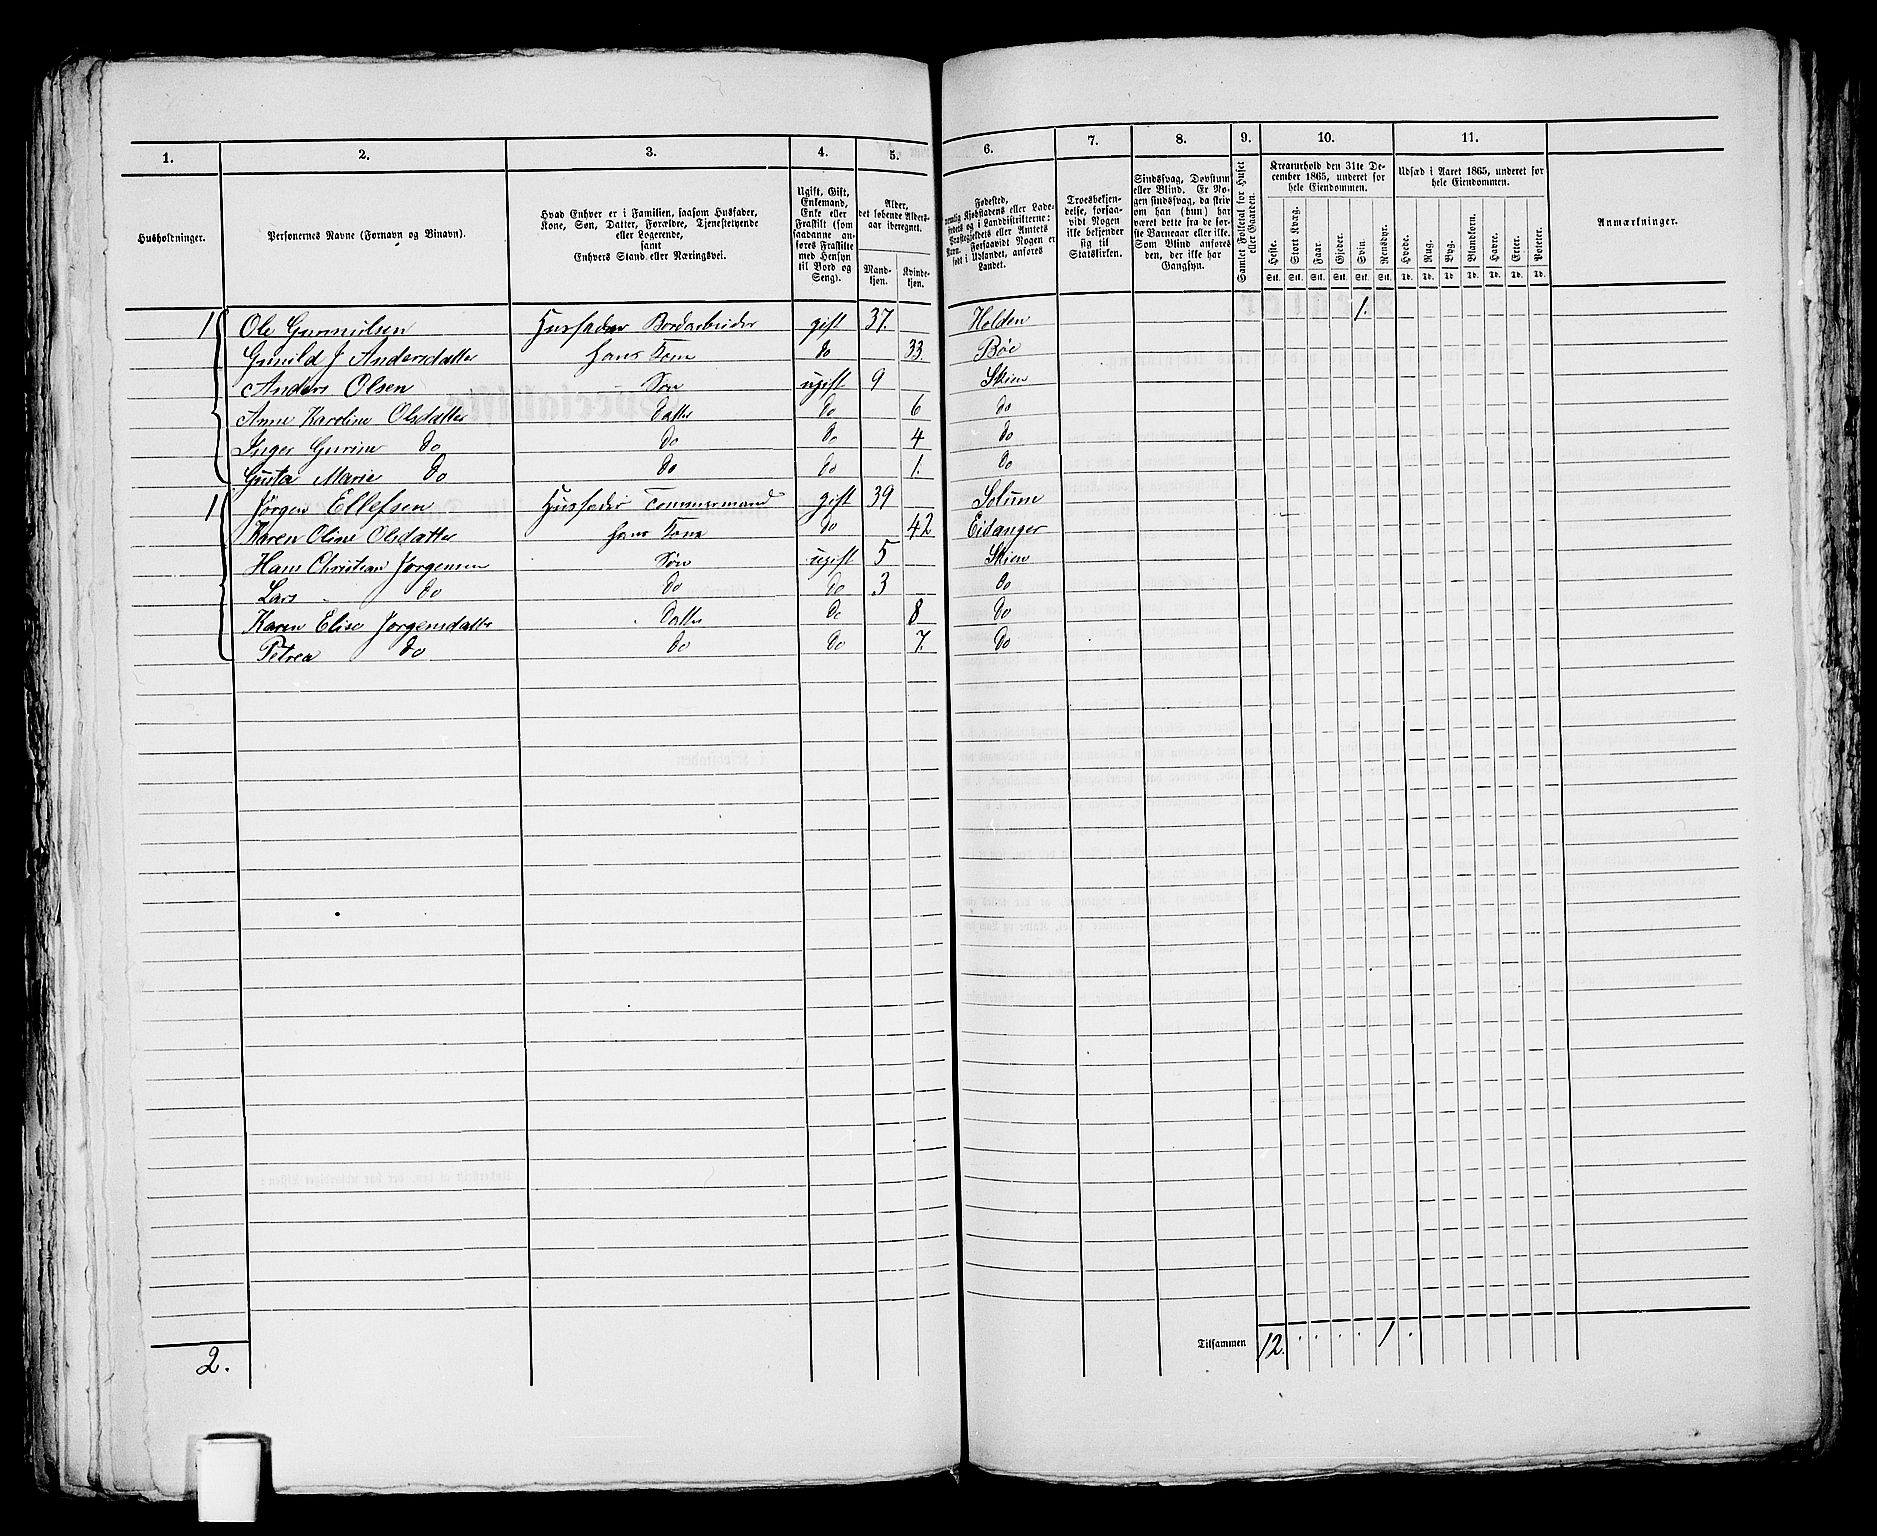 1. 2. 3. 4. 5. 6. 7. 8. 9. 10. 11.
Husholdninger.
Personernes Navne (Fornavn og Binavn).
Hvad Enhver er i Familien, saasom Husfader,
Kone, Søn, Datter, Forældre, Tjenestetyende
eller Logerende,
samt
Enhvers Stand eller Næringsvei.
Ugift, Gift,
Enkemand,
Enke eller
Fraskilt (som
saadanne an-
føres Fraskilte
med Hensyn
til Bord og
Seng).
Alder,
det løbende Alders-
aar iberegnet.
Mand-
kjøn.
Kvinde-
kjøn.
Fødested,
nemlig Kjøbstadens eller Lade-
stedets og i Landdistrikterne:
Præstegjeldets eller Amtets
Navn. Forsaavidt Nogen er
født i Udlandet, anføres
Landet.
Troesbekjen-
delse, forsaa-
vidt Nogen
ikke bekjender
sig til
Statskirken.
Sindssvag, Døvstum
eller Blind. Er No-
gen sindssvag, da skriv
om han (hun) har
været dette fra de før-
ste Barneaar eller ikke.
Som Blind anføres
den, der ikke har
Gangsyn.
Samlet Folketal for Huset
eller Gaarden.
Kreaturhold den 31te De-
cember 1865, underet for
hele Eiendommen.
Heste. Stort Kvæg. Faar. Gjeder. Svin. Rensdyr.
Stk. Stk. Stk. Stk. Stk. Stk.
Udsæd i Aaret 1865, underet for
hele Eiendommen.
Hvede. Rug. Byg. Blandkorn. Havre. Erter. Poteter.
Td. Td. Td. Td. Td. Td. Td.
Anmærkninger.
1 Ole Husfader Bordarbeider gift 37. Holden 1.
Gunild J Andersdatter hans Kone do 33. Bøe
Anders Olsen Søn ugift 9 Skien
Anne Karoline Olsdatter Datter do 6 do
Inger Gurine do do do 4 do
Gusta Marie do do do 1. do
1 Jørgen Ellefsen Husfader Tømmermand gift 39 Solum
Karen Oline Olsdatter hans Kone do 42 Eidanger
Hans Christian Jørgensen Søn ugift 5 Skien
Lars do do do 3 do
Karen Elise Jørgensdatter Datter do 8 do
Petrea do do do 7. do
2.
Tilsammen 12. . . . . 1 .